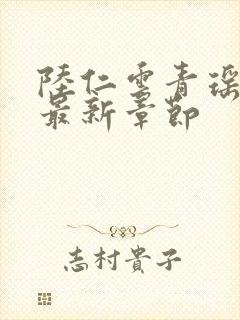 陸仁雲青瑶
最新章節
志村貴子